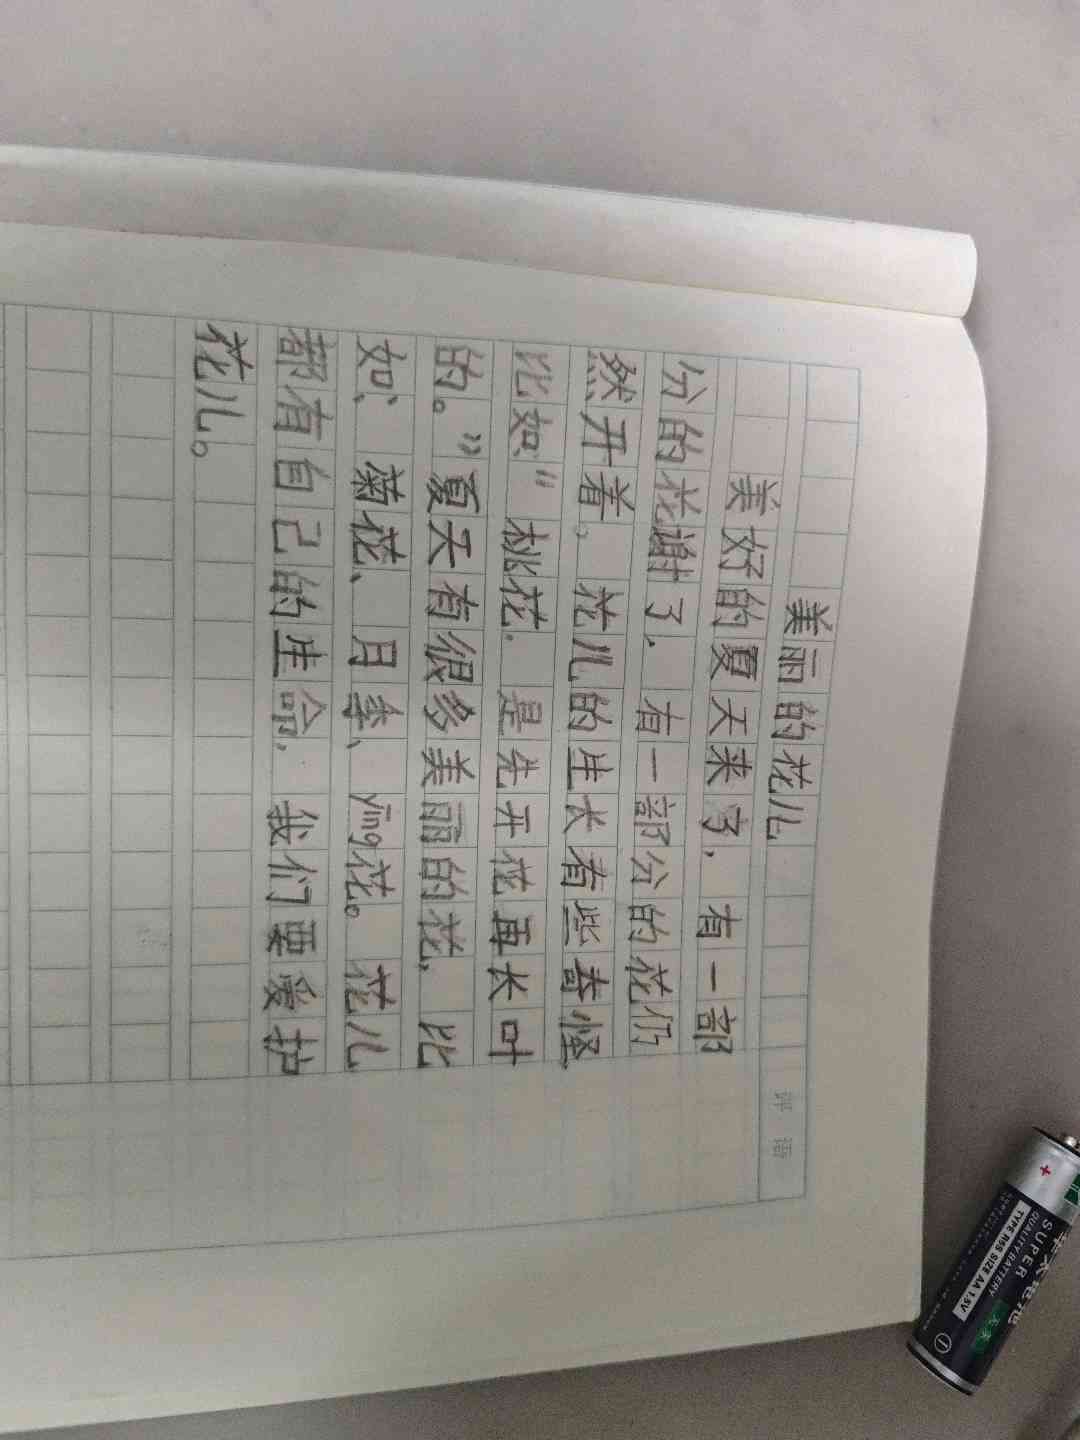 美丽的花儿
美好的夏天来了，有一部
分的花谢了，有一部分的花仍
然开着。花儿的生长有些奇怪，
比如“桃花，是先开花再长叶
的。”夏天有很多美丽的花，比
如、菊花、月季、yīng花。花儿
都有自己的生命，我们要爱护
花儿。
评语
SUPER
QUALITY BATTERY
TYPE R6S SIZE AA 1.5V
+